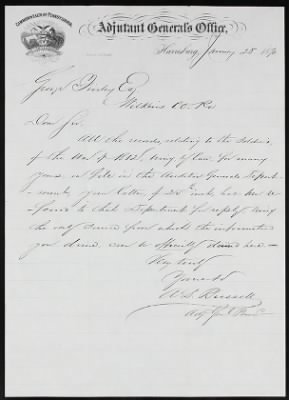 COMMONWEALTH OF PENNSYLVANIA
Adjutant General's Office,
Harrisburg, January 28 187
George Esq
Wilkins P.O. Pa
Dear Sir,
All the records relating to the Soldiers
of the War of 1812, being by law for many
years, on file in the Auditor General's Depart-
ment, your letter, of 25th inst, has been re-
ferred to that Department for reply, being
the only source from which the information
you desire, can be officially derived here—
Very truly
Yours &c
Russell
Adj Genl Penna